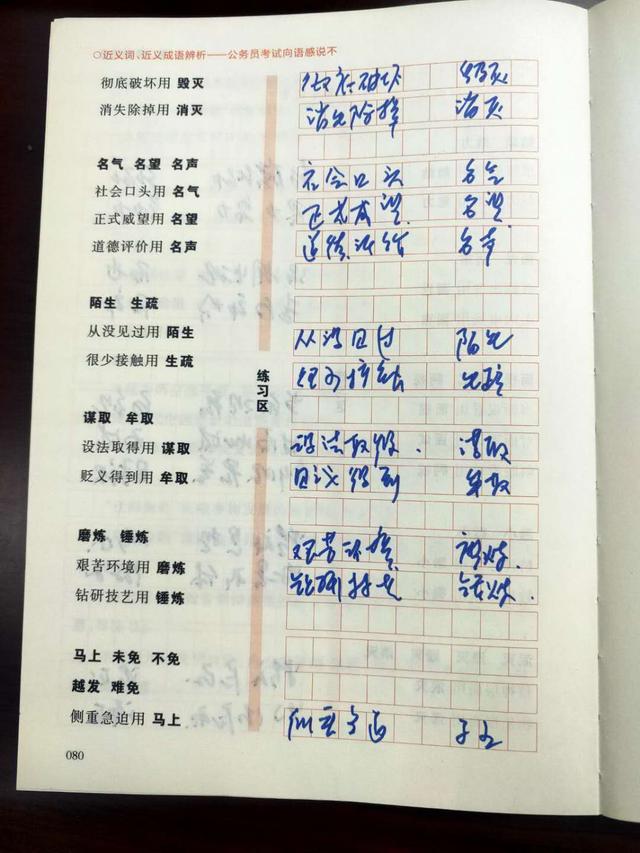 ○近义词、近义成语辨析——公务员考试向语感说不
彻底破坏用 毁灭 彻底破坏 毁灭
消失除掉用 消灭 消失除掉 消灭
名气 名望 名声
社会口头用 名气 社会口头 名气
正式威望用 名望 正式威望 名望
道德评价用 名声 道德评价 名声
陌生 生疏
从没见过用 陌生 从没见过 陌生
很少接触用 生疏 很少接触 生疏
练习区
谋取 牟取
设法取得用 谋取 设法取得 谋取
贬义得到用 牟取 贬义得到 牟取
磨练 锤炼
艰苦环境用 磨炼 艰苦环境 磨炼
钻研技艺用 锤炼 钻研技艺 锤炼
马上 未免 不免
越发 难免
侧重急迫用 马上 侧重急迫 马上
080